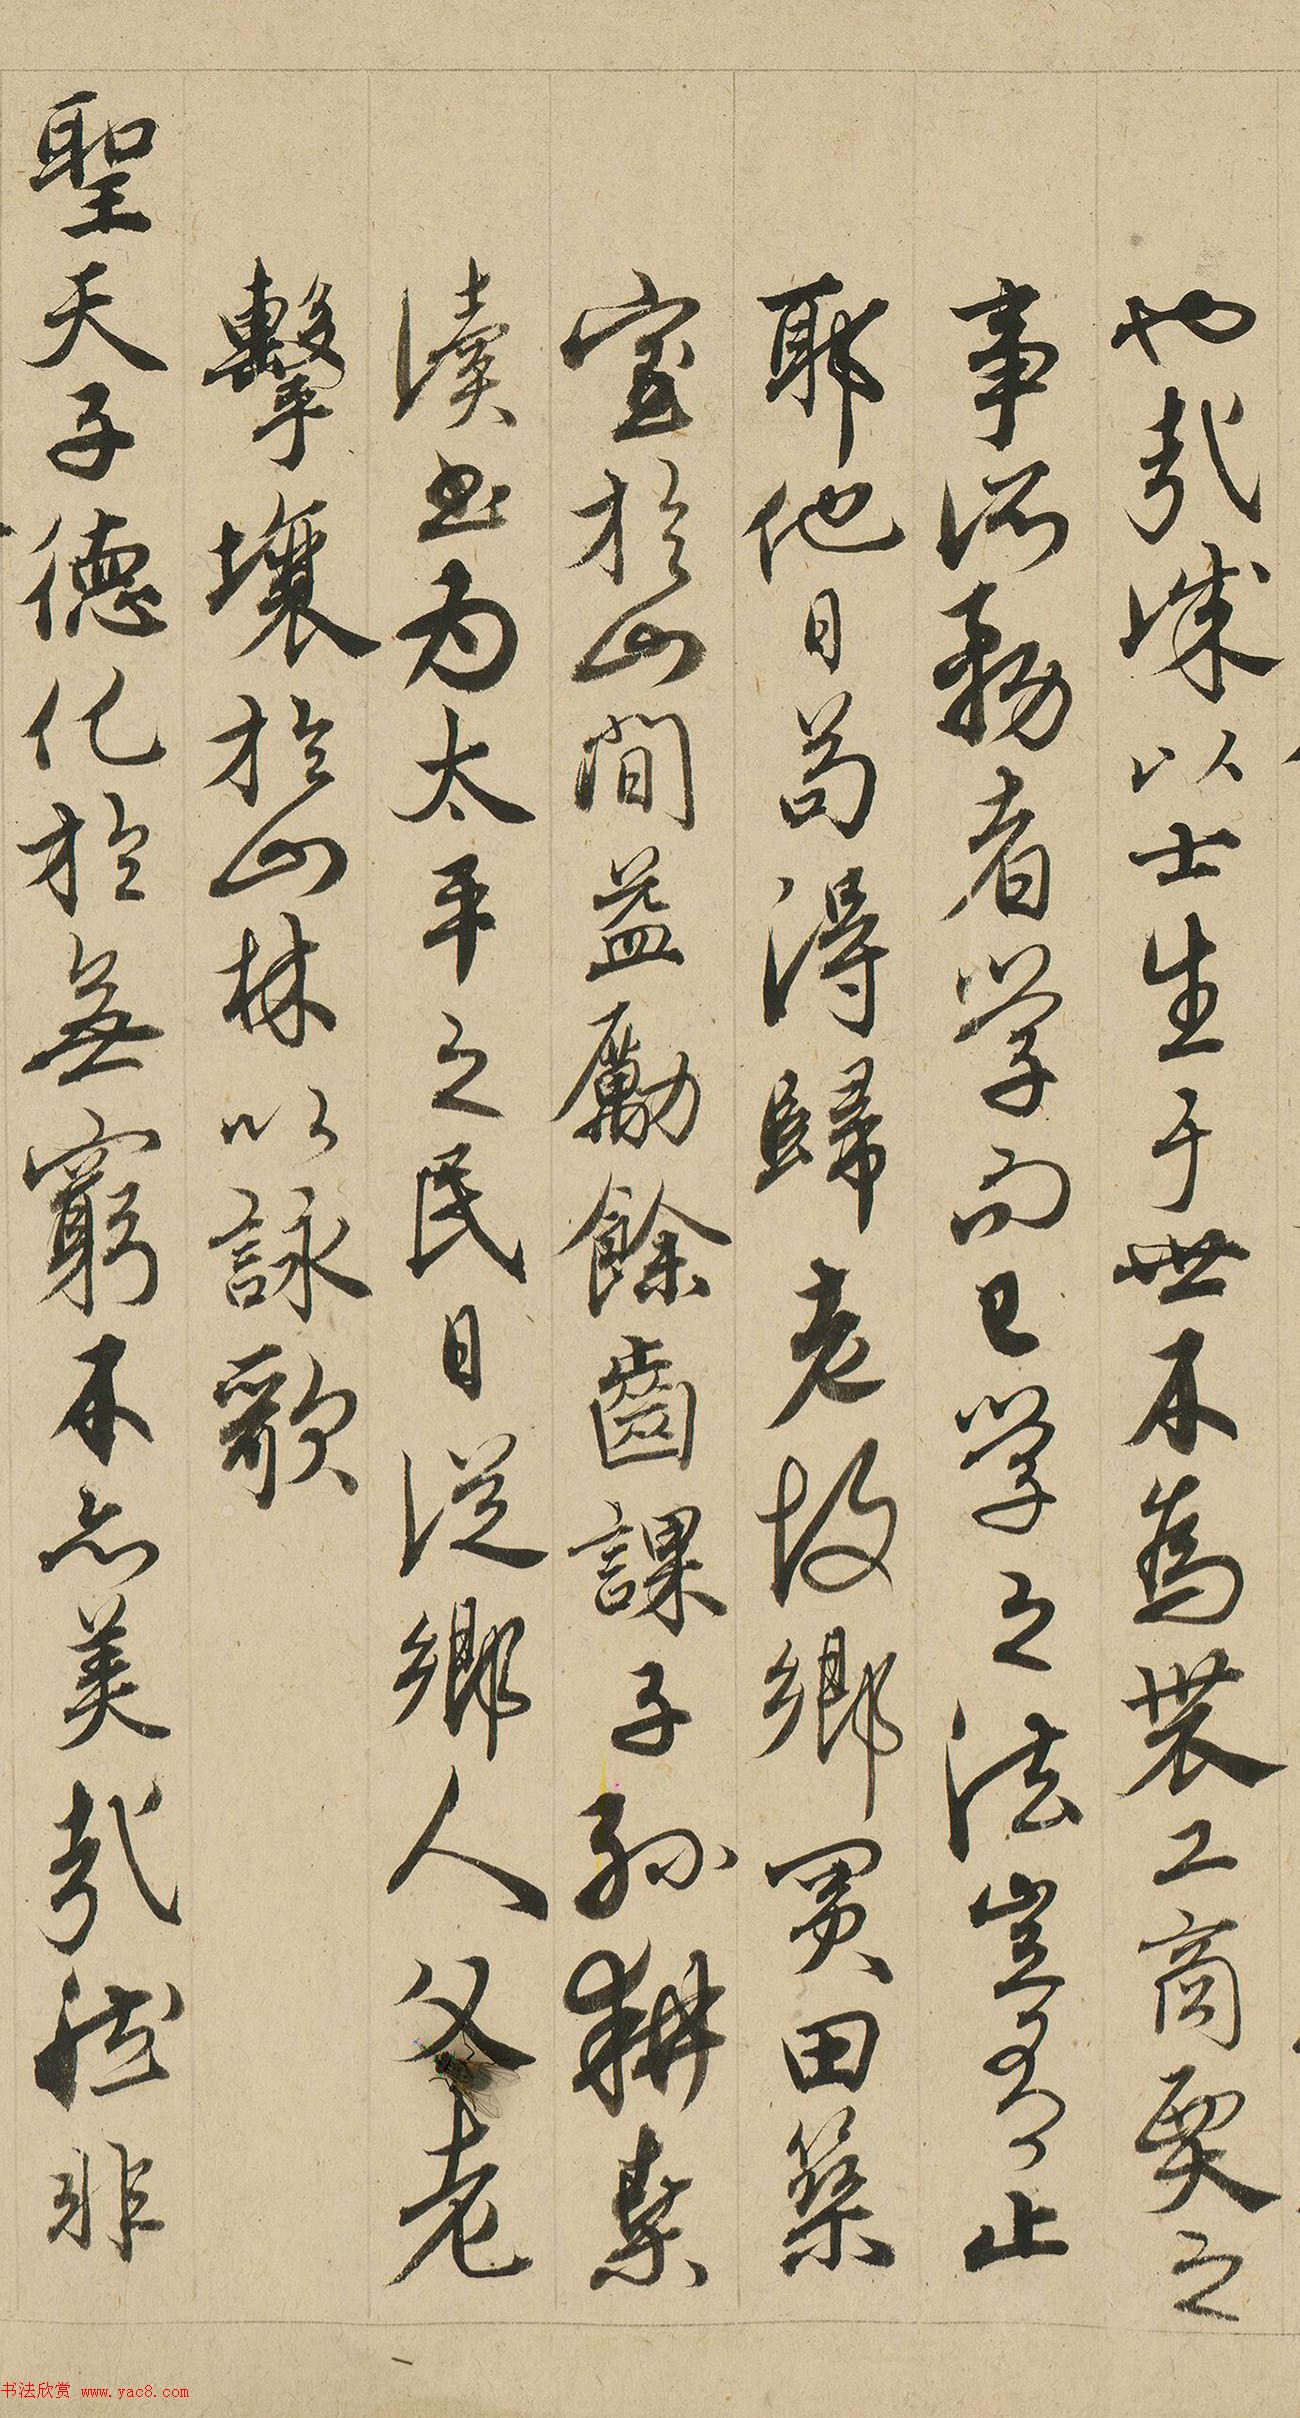 也哉誠以士生于世不為農工商賈之
事所務者學而已學之法豈有止
耶他日苟得歸老故鄉買田築
室於山間益勵餘齒課子孫耕桑
讀書为太平之民日從鄉人父老
擊壤於山林以詠歌
聖天子德化於無窮不亦美哉然非
书法欣赏 www.yac8.com